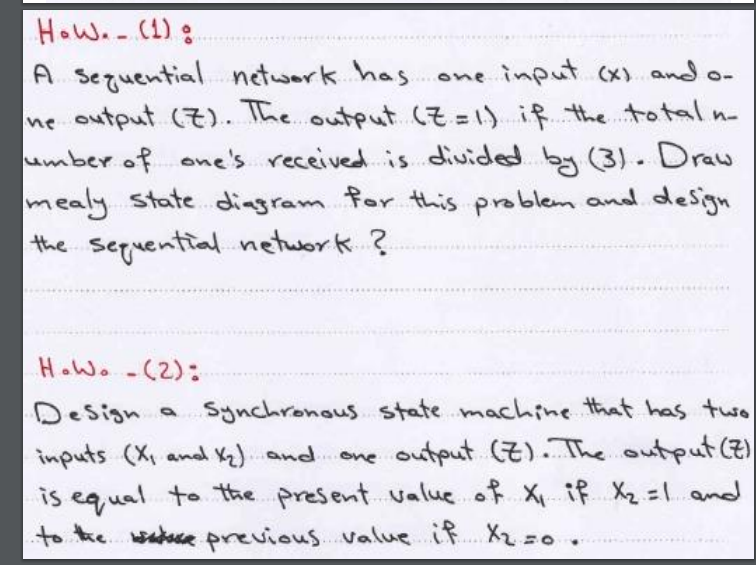 H.W. - (1) :
A sequential network has one input (x) and o-
ne output (Z). The output (Z = 1) if the total n-
umber of one's received is divided by (3). Draw
mealy state diagram for this problem and design
the sequential network ?
H.W. - (2) :
Design a synchronous state machine that has two
inputs (X₁ and X₂) and one output (Z). The output (Z)
is equal to the present value of X₁ if X₂ = 1 and
to the previous value if X₂ = 0 .